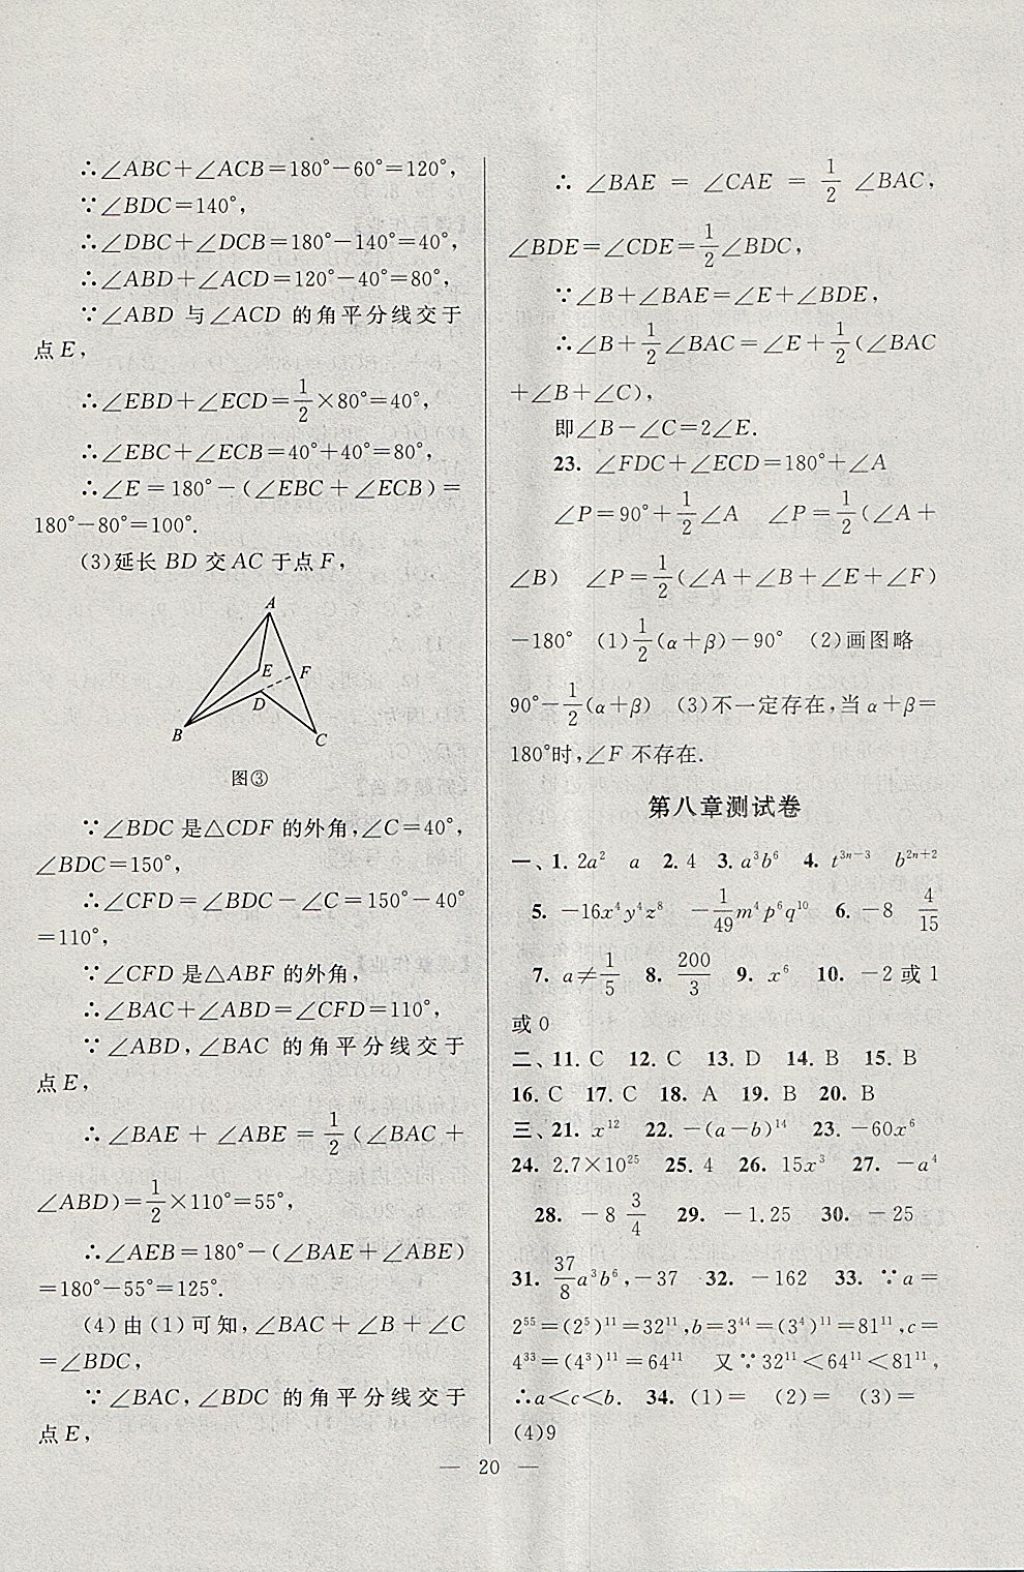 ∴∠ABC+∠ACB=180°-60°=120°,
∵∠BDC=140°,
∴∠DBC+∠DCB=180°-140°=40°,
∴∠ABD+∠ACD=120°-40°=80°,
∵∠ABD 与∠ACD 的角平分线交于
点E,
∴∠EBD+∠ECD=1/2×80°=40°,
∴∠EBC+∠ECB=40°+40°=80°,
∴∠E=180°-(∠EBC+∠ECB)=
180°-80°=100°.
(3)延长 BD 交 AC 于点 F,
A
E
F
D
B
C
图③
∵∠BDC 是△CDF 的外角,∠C=40°,
∠BDC=150°,
∴∠CFD=∠BDC-∠C=150°-40°
=110°,
∵∠CFD 是△ABF 的外角,
∴∠BAC+∠ABD=∠CFD=110°,
∵∠ABD,∠BAC 的角平分线交于
点E,
∴∠BAE+∠ABE=1/2(∠BAC+
∠ABD)=1/2×110°=55°,
∴∠AEB=180°-(∠BAE+∠ABE)
=180°-55°=125°.
(4)由(1)可知,∠BAC+∠B+∠C
=∠BDC,
∵∠BAC,∠BDC 的角平分线交于
点E,
∴∠BAE=∠CAE=1/2∠BAC,
∠BDE=∠CDE=1/2∠BDC,
∵∠B+∠BAE=∠E+∠BDE,
∴∠B+1/2∠BAC=∠E+1/2(∠BAC
+∠B+∠C),
即∠B-∠C=2∠E.
23. ∠FDC+∠ECD=180°+∠A
∠P=90°+1/2∠A ∠P=1/2(∠A+
∠B) ∠P=1/2(∠A+∠B+∠E+∠F)
-180° (1)1/2(α+β)-90° (2)画图略
90°-1/2(α+β) (3)不一定存在,当α+β=
180°时,∠F 不存在.
第八章测试卷
一、1. 2a² a 2. 4 3. a³b⁶ 4. t³ⁿ⁻³ b²ⁿ⁺²
5. -16x⁴y⁴z⁸ -1/49m⁴p⁶q¹⁰ 6. -8 4/15
7. a≠1/5 8. 200/3 9. x⁶ 10. -2或1
或0
二、11. C 12. C 13. D 14. B 15. B
16. C 17. C 18. A 19. B 20. B
三、21. x¹² 22. -(a-b)¹⁴ 23. -60x⁶
24. 2.7×10²⁵ 25. 4 26. 15x³ 27. -a⁴
28. -8 3/4 29. -1.25 30. -25
31. 37/8a³b⁶,-37 32. -162 33. ∵a=
2⁵⁵=(2⁵)¹¹=32¹¹,b=3⁴⁴=(3⁴)¹¹=81¹¹,c=
4³³=(4³)¹¹=64¹¹ 又∵32¹¹<64¹¹<81¹¹,
∴a<c<b. 34. (1)= (2)= (3)=
(4)9
— 20 —